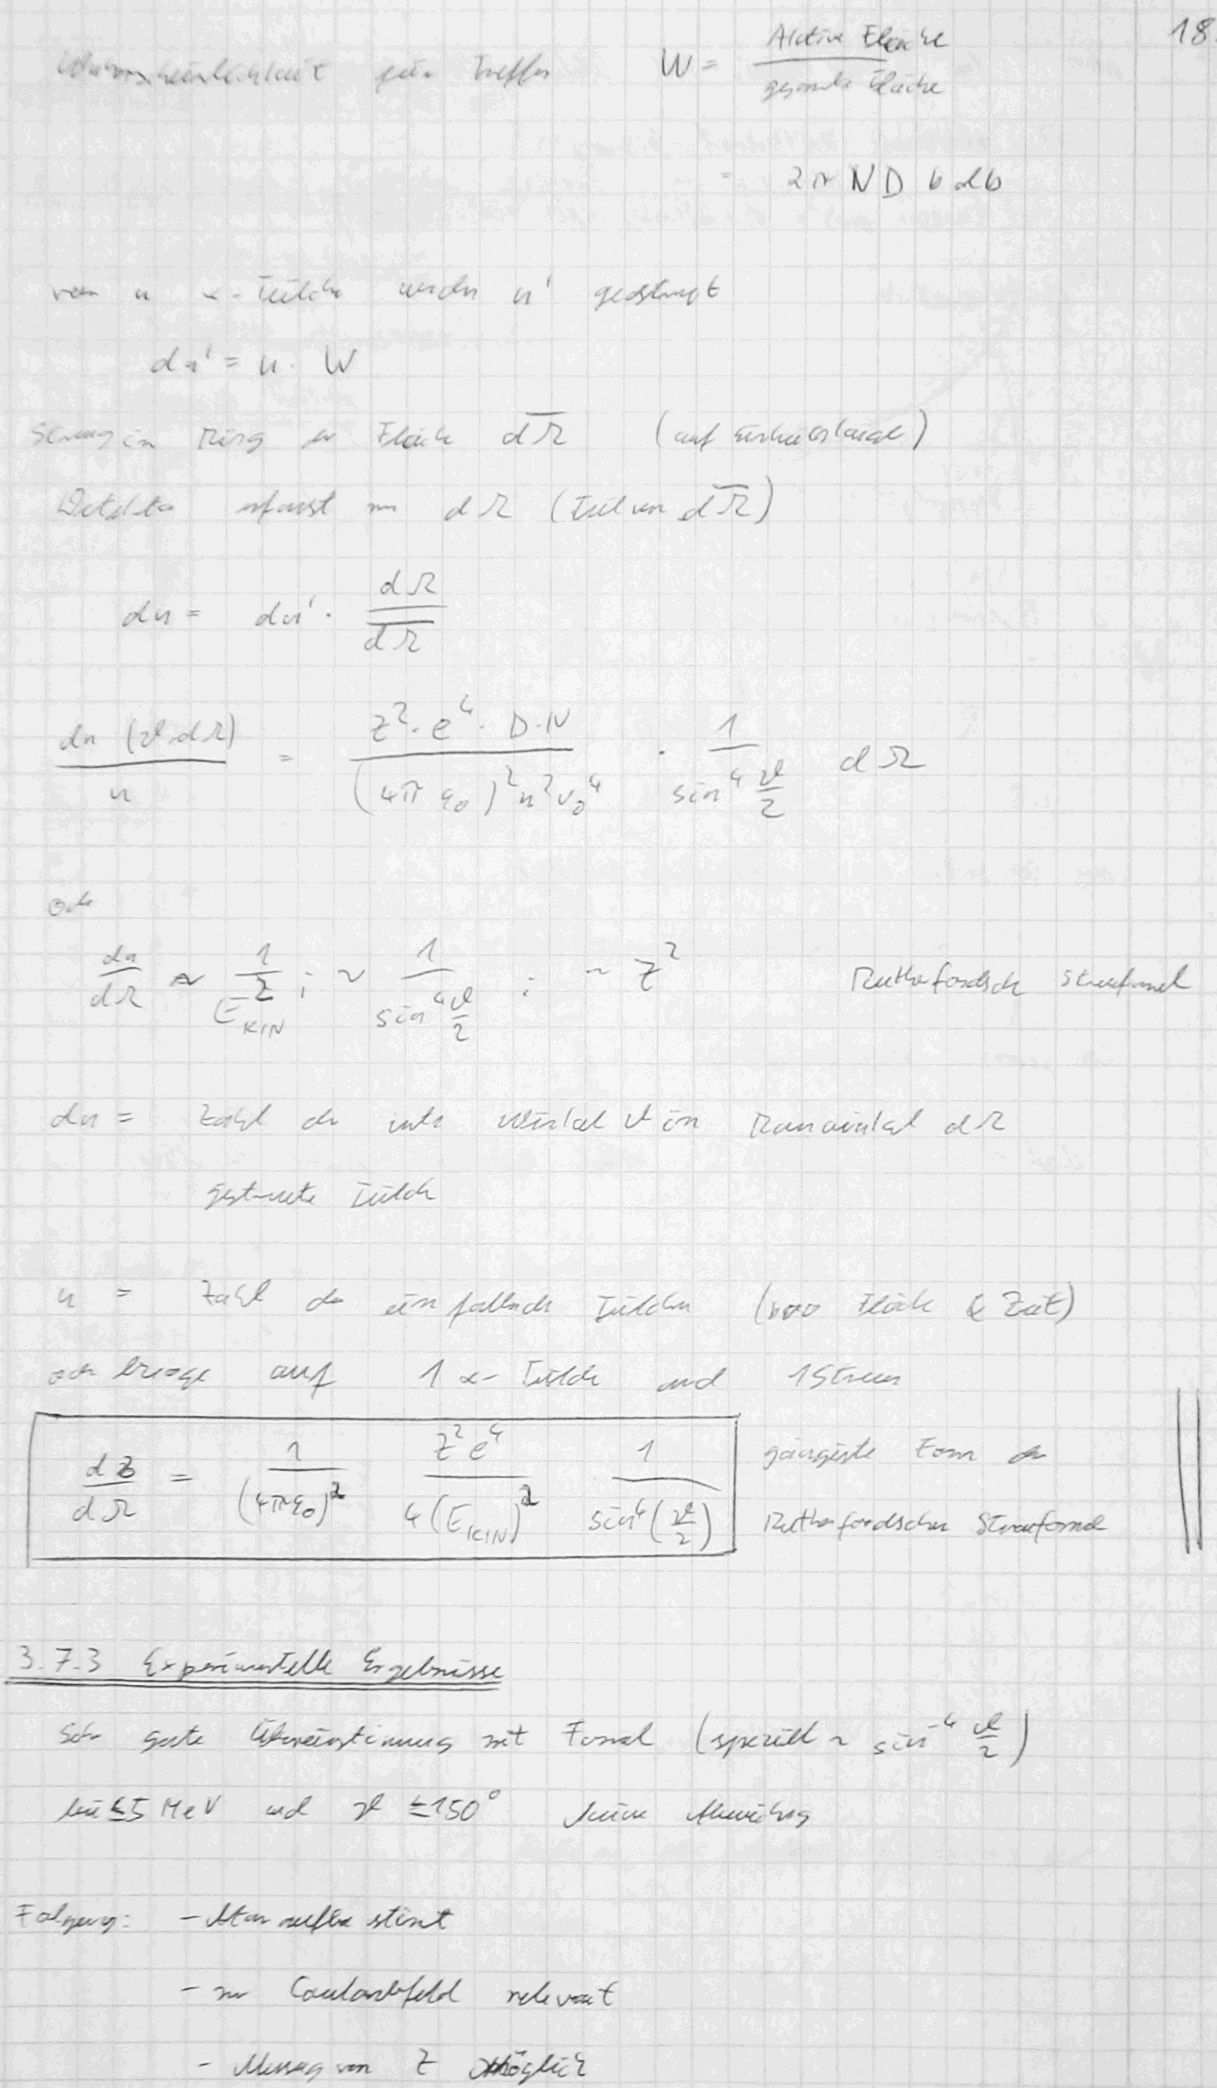 18.
Wahrscheinlichkeit für Treffer W = Aktive Fläche / gesamte Fläche
= 2π N D b db
von n α-Teilchen werden n' gestreut
dn' = n · W
Streuung in Ring der Fläche d\overline{Ω} (auf Einheitskugel)
Detektor erfasst nur dΩ (Teil von d\overline{Ω})
dn = dn' · dΩ / d\overline{Ω}
dn (ϑ, dΩ) / n = Z² · e⁴ · D · N / (4π ε₀)² m² v₀⁴ · 1 / sin⁴ ϑ/2 dΩ
oder
dn / dΩ ~ 1 / E²_KIN ; ~ 1 / sin⁴ ϑ/2 ; ~ Z² Rutherfordsche Streuformel
dn = Zahl der unter Winkel ϑ in Raumwinkel dΩ
gestreute Teilch
n = Zahl der einfallende Teilchen (pro Fläche & Zeit)
oder bezogen auf 1 α-Teilch und 1 Streuer
dσ / dΩ = 1 / (4πε₀)² Z² e⁴ / 4 (E_KIN)² 1 / sin⁴ (ϑ/2) gängigste Form der
Rutherfordschen Streuformel
3.7.3 Experimentelle Ergebnisse
Sehr gute Übereinstimmung mit Formel (speziell ~ sin⁻⁴ ϑ/2)
bei ≤5 MeV und ϑ ≤150° keine Abweichung
Folgerung: - Atomaufbau stimt
- nur Coulombfeld relevant
- Messung von Z möglich